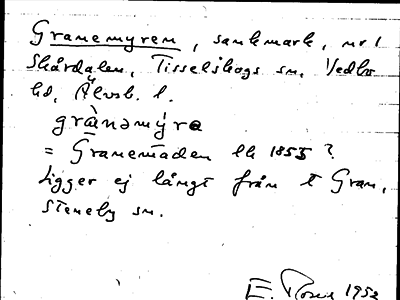 Granemyren, sankmark, nr 1
Skårdalen, Tisselskogs sn, Vedbo
hd, Älvsb. l.
grànǝmýra
= Granemaden lk 1855 ?
Ligger ej långt från t Gran,
Steneby sn.
E. 1952